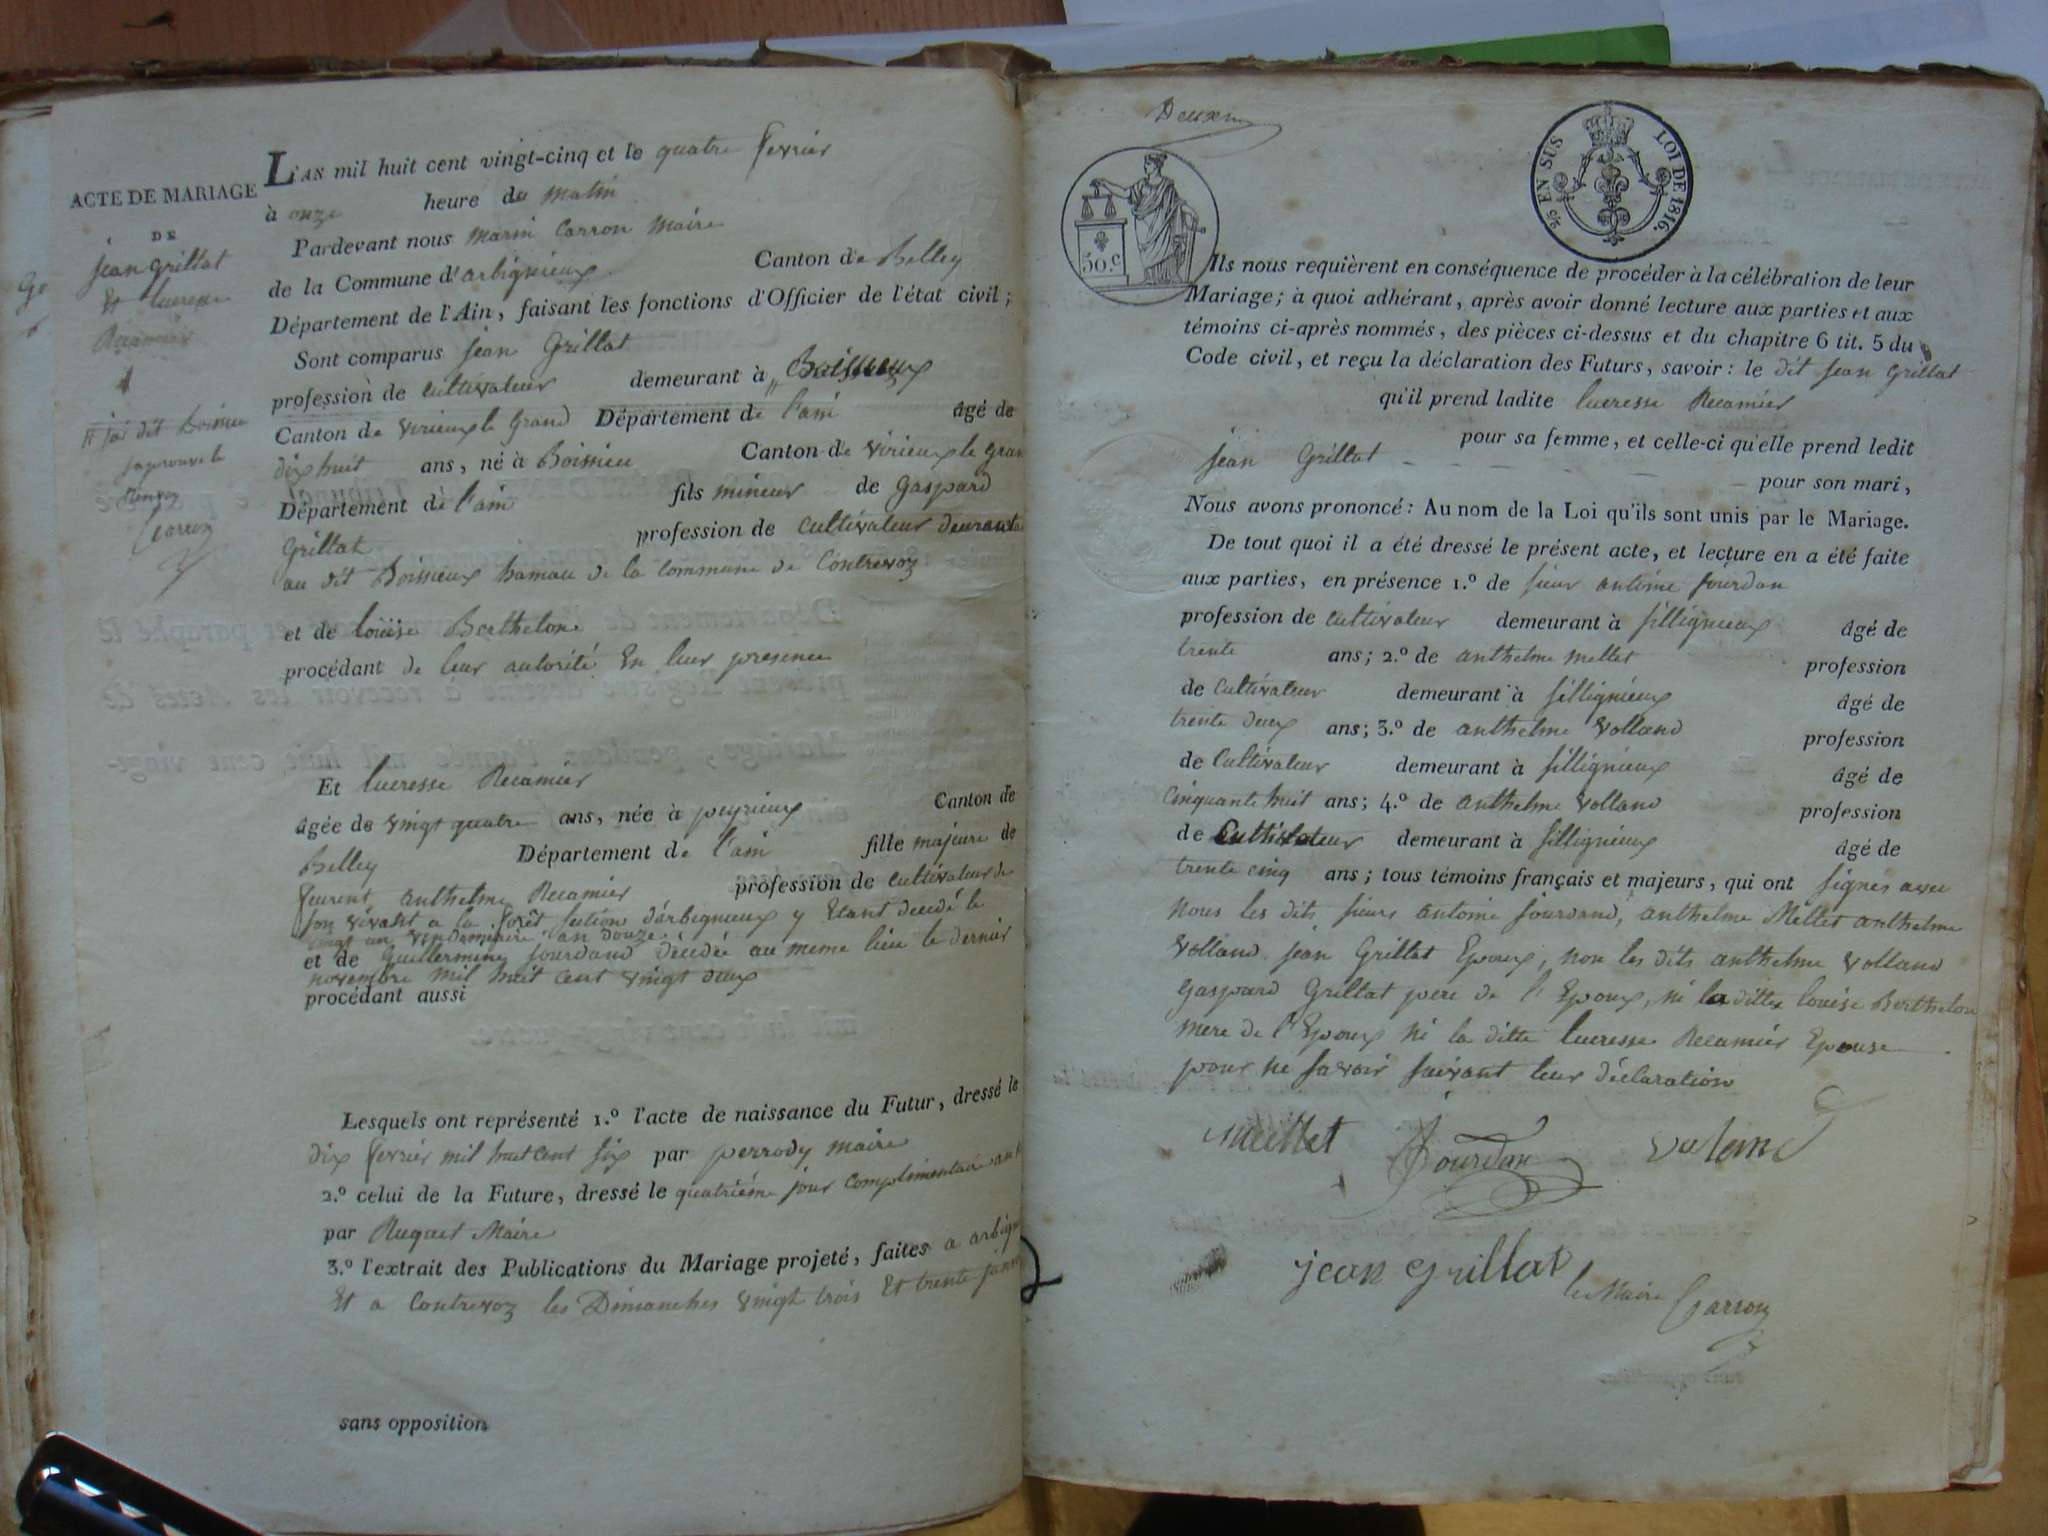 ACTE DE MARIAGE
DE
jean Grillat
Et lucresse
Recamier
jai dit Boissieu
japrouve le
Renvoy
Carron
L'AN mil huit cent vingt-cinq et le quatre fevrier
à onze heure du matin
Pardevant nous marin Carron maire
de la Commune d'arbignieux Canton de Belley
Département de l'Ain, faisant les fonctions d'Officier de l'état civil;
Sont comparus jean Grillat
profession de cultivateur demeurant à Boissieux
Canton de virieux le Grand Département de l'ain âgé de
dix huit ans, né à Boissieu Canton de virieux le gran
Département de l'ain fils mineur de Gaspard
Grillat profession de cultivateur
au dit Boissieux hamau de la commune de Contrevoz
et de louise Berthelon
procédant de leur autorité En leur presence
Et lucresse Recamier
âgée de vingt quatre ans, née à peyrieux Canton de
Belley Département de l'ain fille majeure de
anthelme Recamier profession de cultivateur de
son vivant a la forêt section d'arbignieux y Etant decedé le
vingt un vendemiaire an douze
et de Guillermine jourdand décédée au meme lieu le dernier
novembre mil huit cent vingt deux
procédant aussi
Lesquels ont représenté 1.º l'acte de naissance du Futur, dressé le
dix fevrier mil huit cent six par perrody maire
2.º celui de la Future, dressé le quatriéme jour complimentaire
par Ruquet Maire
3.º l'extrait des Publications du Mariage projeté, faites a arbign
Et a Contrevoz les Dimanches vingt trois Et trente janv
sans opposition
Deuxm
50.C
25 EN SUS
LOI DE 1816.
Ils nous requièrent en conséquence de procéder à la célébration de leur
Mariage; à quoi adhérant, après avoir donné lecture aux parties et aux
témoins ci-après nommés, des pièces ci-dessus et du chapitre 6 tit. 5 du
Code civil, et reçu la déclaration des Futurs, savoir: le dit jean Grillat
qu'il prend ladite lucresse Recamier
pour sa femme, et celle-ci qu'elle prend ledit
jean Grillat
pour son mari,
Nous avons prononcé: Au nom de la Loi qu'ils sont unis par le Mariage.
De tout quoi il a été dressé le présent acte, et lecture en a été faite
aux parties, en présence 1.º de sieur antoine jourdan
profession de cultivateur demeurant à sillignieux âgé de
trente ans; 2.º de anthelme mellet profession
de cultivateur demeurant à sillignieux âgé de
trente deux ans; 3.º de anthelme volland profession
de Cultivateur demeurant à sillignieux âgé de
cinquante huit ans; 4.º de anthelme volland profession
de Cultivateur demeurant à sillignieux âgé de
trente cinq ans; tous témoins français et majeurs, qui ont signés avec
nous les dits sieurs antoine jourdand, anthelme Mellet anthelme
volland jean Grillat Epoux, non les dits anthelme volland
Gaspard Grillat pere de l'Epoux, ni la ditte louise Berthelon
mere de l'Epoux ni la ditte lucresse Recamier Epouse
pour ne savoir suivant leur déclaration
meillet Jourdan
jean grillat
le Maire Carron